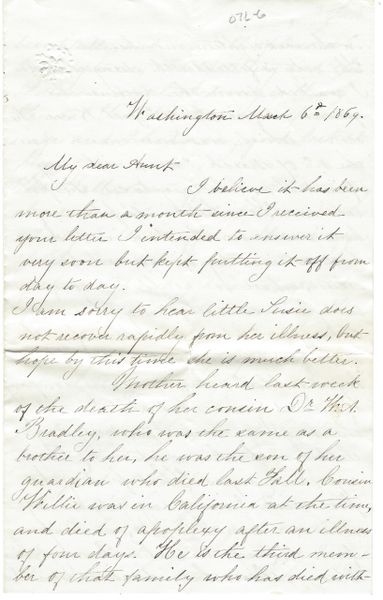 076-6
Washington March 6th 1869.
My dear Aunt
I believe it has been
more than a month since I received
your letter I intended to answer it
very soon but kept putting it off from
day to day.
I am sorry to hear little Susie does
not recover rapidly from her illness, but
hope by this time she is much better.
Mother heard last week
of the death of her cousin Dr. W. A.
Bradley, who was the same as a
brother to her, he was the son of her
guardian who died last Fall. Cousin
Willie was in California at the time,
and died of apoplexy after an illness
of four days. He is the third mem-
ber of that family who has died with-